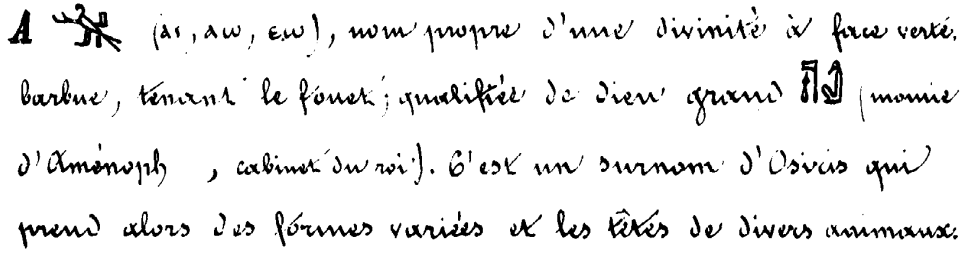 A (ⲁⲓ, ⲁⲱ, ⲉⲱ), nom propre d'une divinité à face verte,
barbue, tenant le fouet; qualifiée de dieu grand (momie
d'Aménoph , cabinet du roi). C'est un surnom d'Osiris qui
prend alors des formes variées et les têtes de divers animaux.